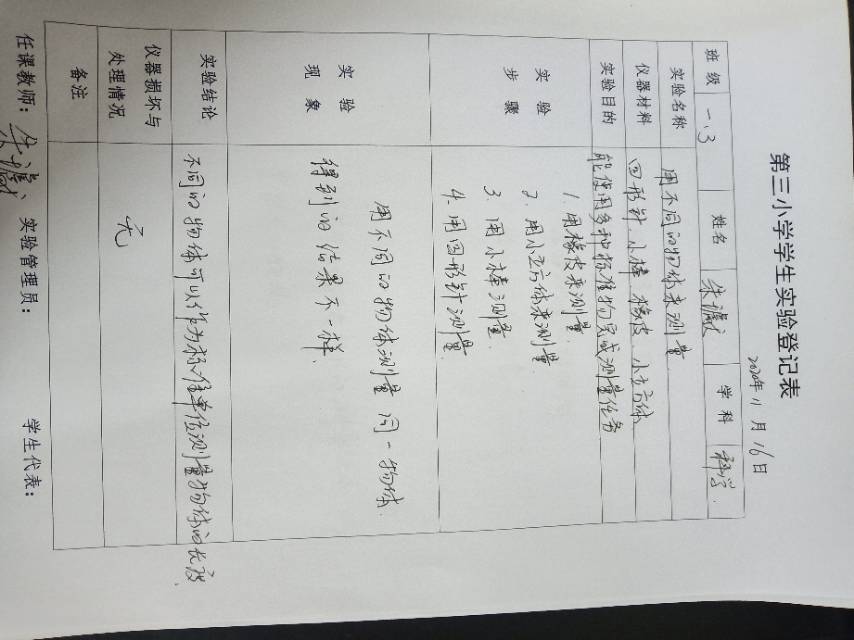 第三小学学生实验登记表
2020年11月16日
班级 一.3 姓名 学科 科学.
实验名称 用不同的物体来测量
仪器材料 回形针 小棒 橡皮 小立方体
实验目的 能使用多种标准物完成测量任务
实验步骤
1. 用橡皮来测量.
2. 用小立方体来测量
3. 用小棒测量.
4. 用回形针测量.
实验现象
用不同的物体测量同一物体.
得到的结果不一样.
实验结论 不同的物体可以作为标准单位测量物体的长度.
仪器损坏与处理情况 无
备注
任课教师: 实验管理员: 学生代表: